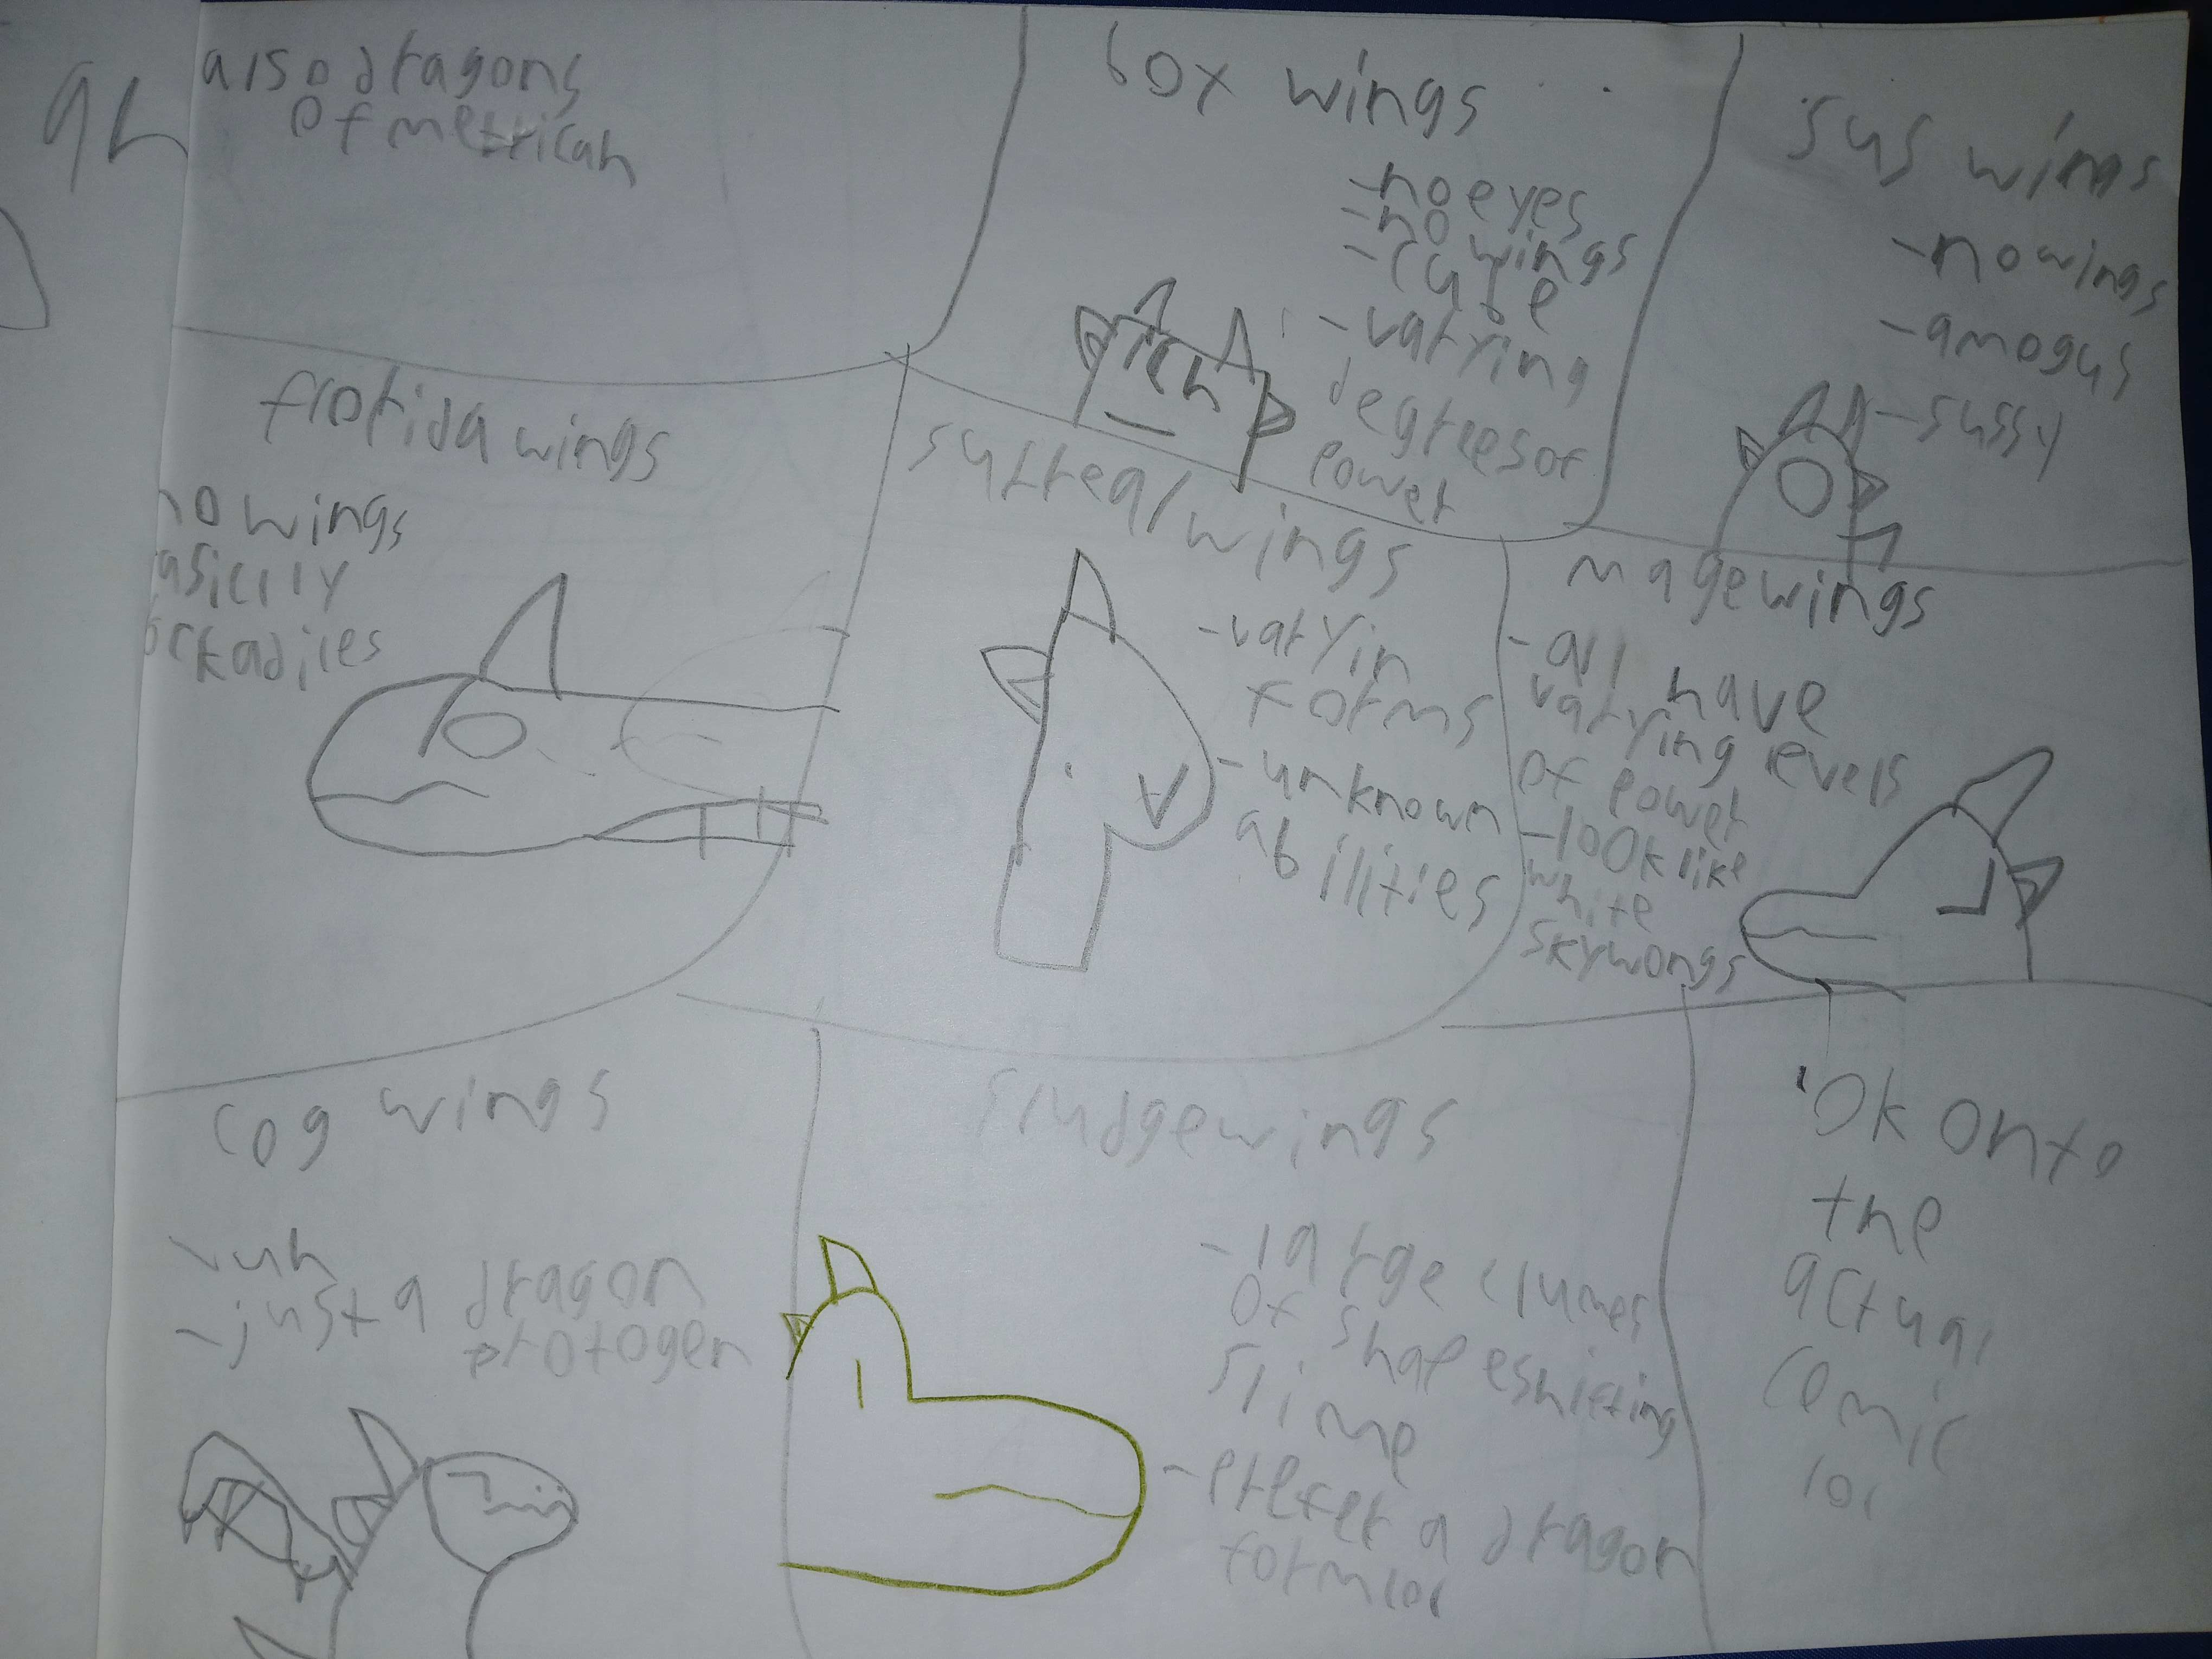 also dragons
of metrican
box wings
-no eyes
-no wings
-cute
-varying
degrees of
power
sus wings
-no wings
-amogus
-sussy
florida wings
no wings
asiclly
ockadiles
surreal wings
-varyin
forms
-unknown
abilities
magewings
-all have
varying levels
of power
-look like
white
skywongs
cog wings
-uh
-just a dragon
protogen
sludgewings
-large clumps
of shapeshifting
slime
-prefer a dragon
form lol
Ok onto
the
actual
comic
lol